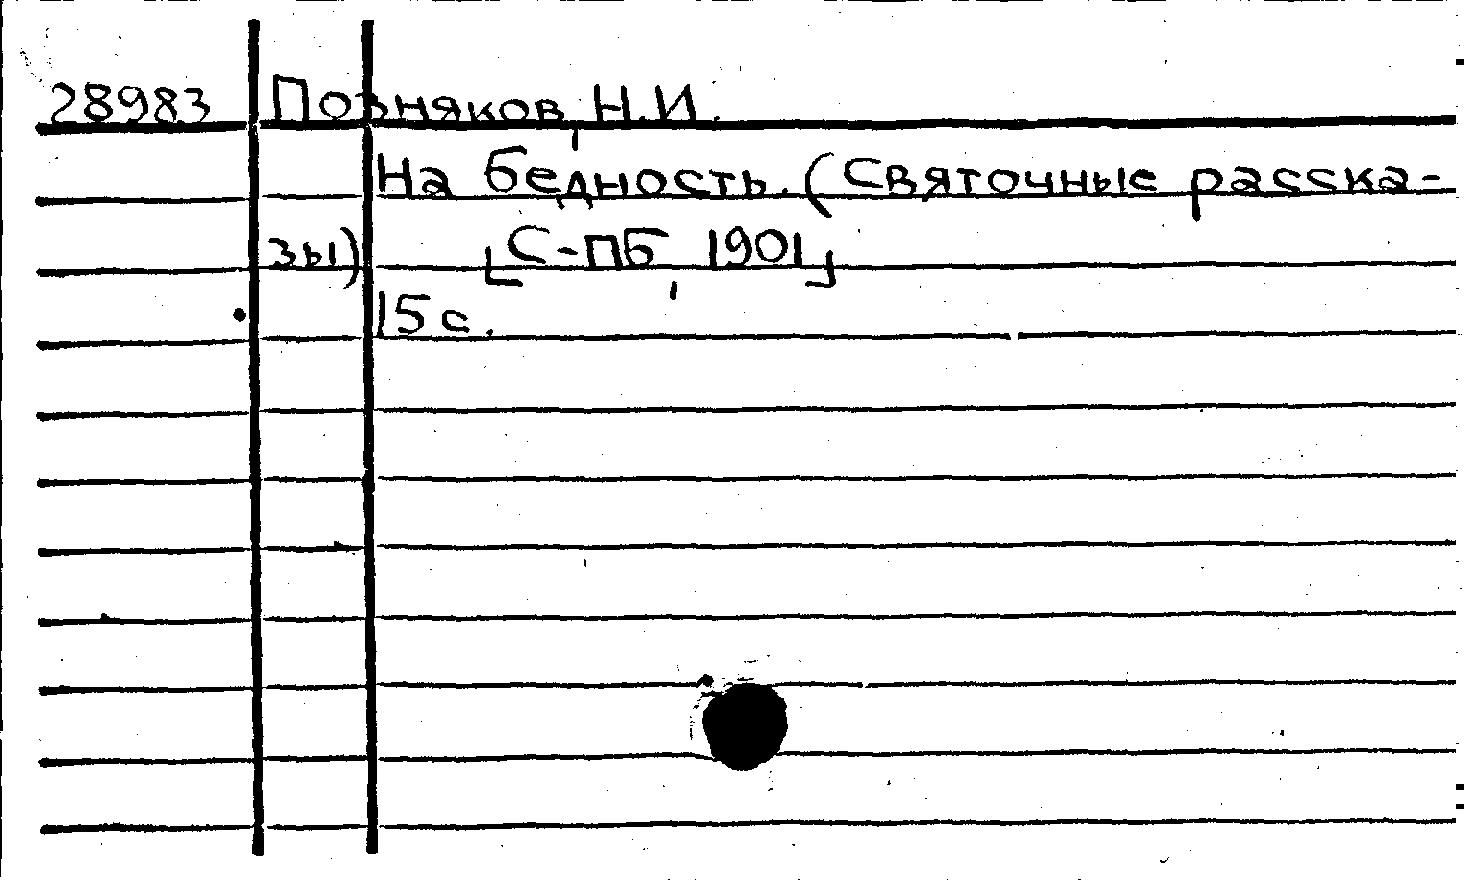 28983 Позняков, Н.И.
На бедность. (Святочные расска-
зы) [С-ПБ, 1901]
15 с.